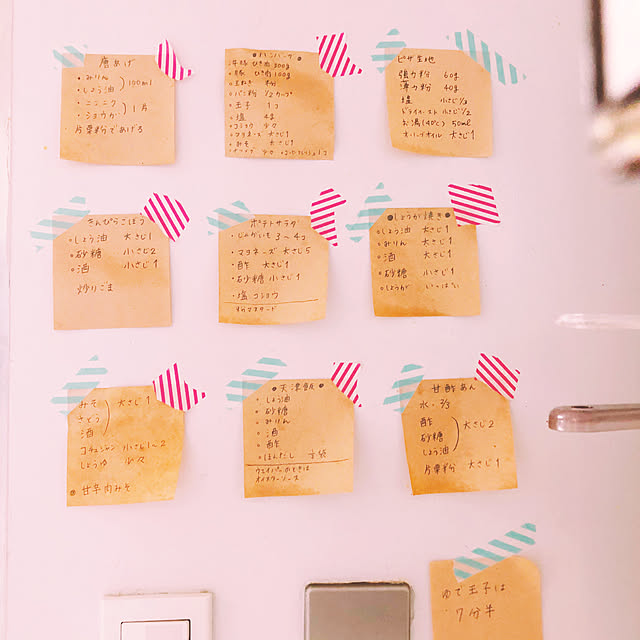 唐あげ
・みりん
・しょう油
100ml
・ニンニク
・ショウガ
1片
片栗粉であげる
●ハンバーグ●
・豚 ひき肉 100g
・玉ねぎ
・パン粉 1/2カップ
・玉子 1コ
・塩 4g
・コショウ 少々
・マヨネーズ 大さじ1
・みそ 大さじ1
ピザ生地
強力粉 60g
薄力粉 40g
塩 小さじ1/3
ドライイースト 小さじ1/2
お湯(40℃) 50ml
オリーブオイル 大さじ1
きんぴらごぼう
○しょう油 大さじ1
○砂糖 小さじ2
○酒 小さじ1
炒りごま
ポテトサラダ
・じゃがいも 3〜4コ
・マヨネーズ 大さじ5
・酢 大さじ1
・砂糖 小さじ1
・塩コショウ
粒マスタード
●しょうが焼き●
○しょう油 大さじ1
○みりん 大さじ1
○酒 大さじ1
○砂糖 小さじ1
○しょうが いっぱい
みそ
さとう
酒
大さじ1
コチュジャン 小さじ1〜2
しょうゆ 少々
● 甘辛肉みそ
●天津飯●
・しょう油
・砂糖
・みりん
・酒
・酢
・ほんだし 半袋
ウェイパーのときは
オイスターソース
甘酢あん
水 2/3
酢
砂糖
しょう油
大さじ2
片栗粉 大さじ1
ゆで玉子は
7分半